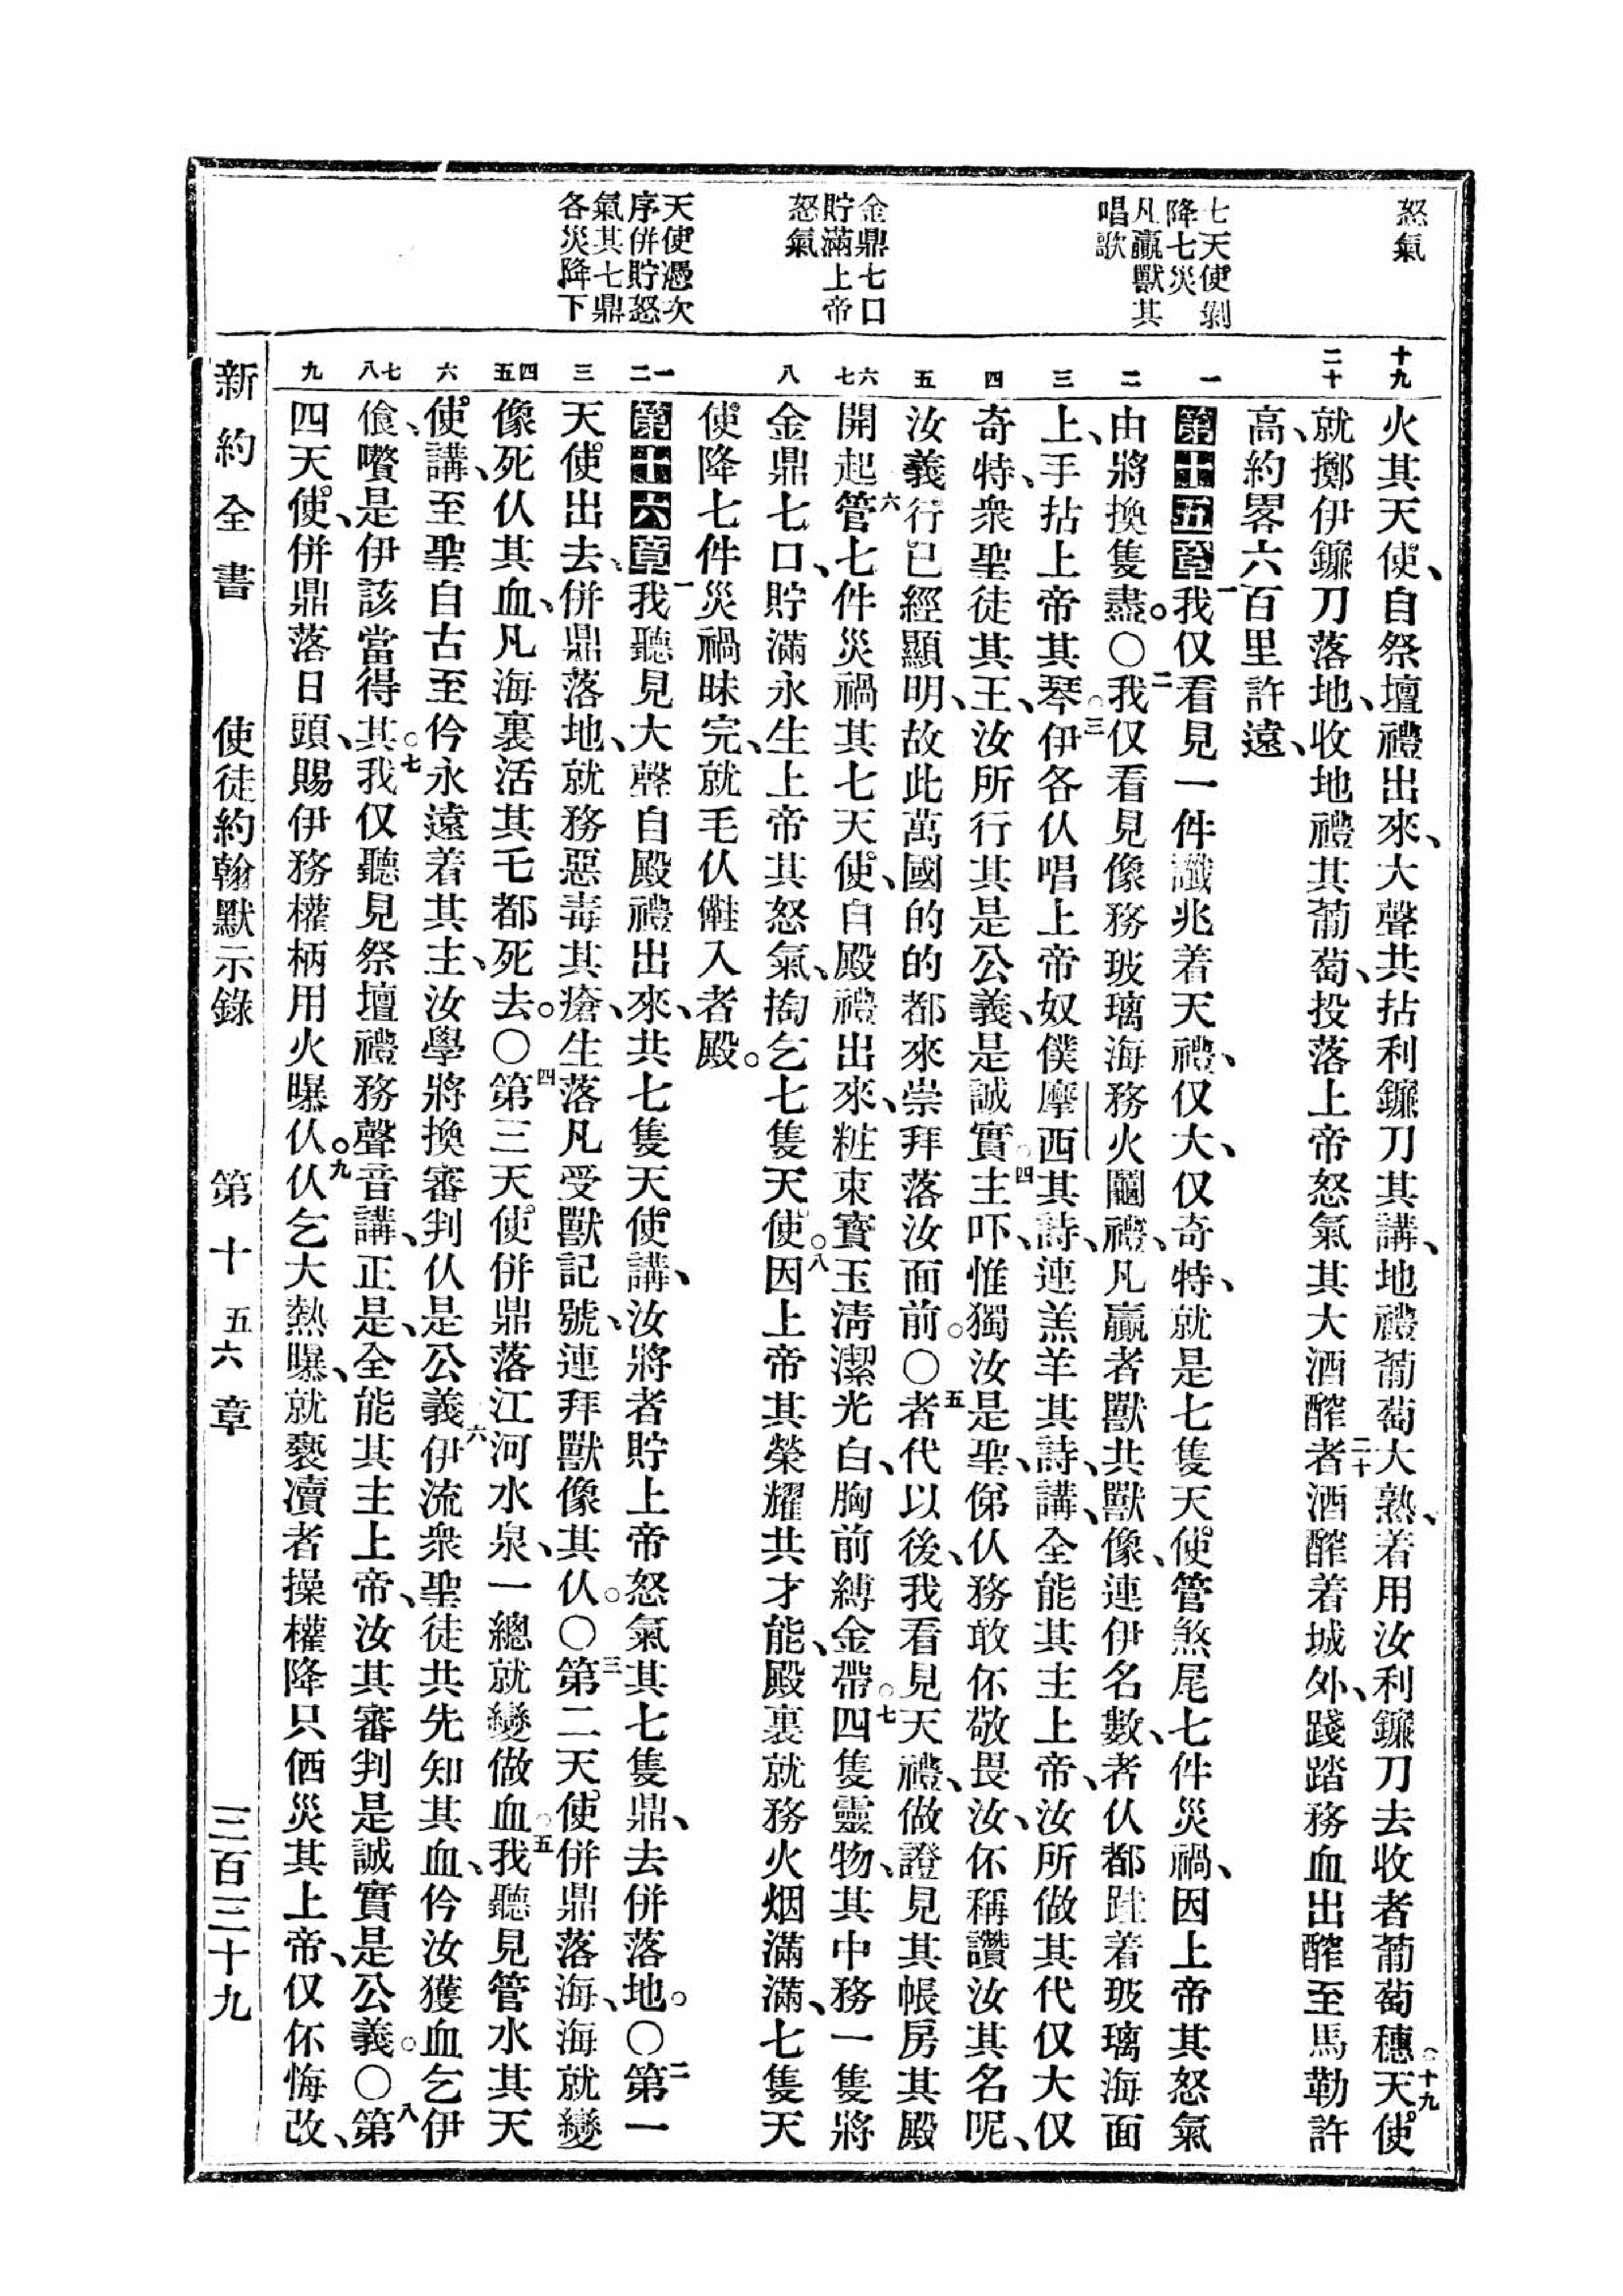 怒氣
七天使剝
降七災
凡贏獸其
唱歌
金鼎七口
貯滿上帝
怒氣
天使憑次
序倂貯怒
氣其七鼎
各災降下
十九
二十
一
二
三
四
五
六
七
八
一
二
三
四
五
六
七
八
九
火其天使、自祭壇禮出來、大聲共拈利鐮刀其講、地禮葡萄大熟、着用汝利鐮刀去收者葡萄穗○十九天使
就擲伊鐮刀落地、收地禮其葡萄、投落上帝怒氣其大酒醡二十者酒醡着城外、踐踏務血出醡至馬勒許
高、約畧六百里許遠、
第十五章一我仅看見一件讖兆着天禮、仅大、仅奇特、就是七隻天使管煞尾七件災禍、因上帝其怒氣
由將換隻盡。○二我仅看見像務玻璃海務火鬮禮、凡贏者獸共獸像、連伊名數、者仈都跬着玻璃海面
上、手拈上帝其琴○三伊各仈唱上帝奴僕摩西其詩、連羔羊其詩、講、全能其主上帝、汝所做其代仅大仅
奇特、衆聖徒其王、汝所行其是公義、是誠實○四主吓、惟獨汝是聖、俤仈務敢伓敬畏汝、伓稱讚汝其名呢、
汝義行已經顯明、故此萬國的的都來崇拜落汝面前○○五者代以後、我看見天禮、做證見其帳房其殿
開起六管七件災禍其七天使、自殿禮出來、粧束寶玉淸潔光白、胸前縛金帶○七四隻靈物、其中務一隻將
金鼎七口、貯滿永生上帝其怒氣、掏乞七隻天使○八因上帝其榮耀共才能、殿裏就務火烟滿滿、七隻天
使降七件災禍昧完、就毛仈𠍆入者殿。
第十六章一我聽見大聲自殿禮出來、共七隻天使講、汝將者貯上帝怒氣其七隻鼎、去倂落地。○二第一
天使出去、倂鼎落地、就務惡毒其瘡、生落凡受獸記號、連拜獸像其仈○○三第二天使倂鼎落海、海就變
像死仈其血、凡海裏活其乇都死去。○四第三天使倂鼎落江河水泉、一總就變做血○五我聽見管水其天
使講、至聖自古至仱永遠着其主、汝學將換審判仈是公義六伊流衆聖徒共先知其血、仱汝獲血乞伊
飡囋是伊該當得其○七我仅聽見祭壇禮務聲音講、正是、全能其主上帝、汝其審判是誠實是公義○○八第
四天使、倂鼎落日頭、賜伊務權柄用火曝仈。九仈乞大熱曝、就褻凟者操權降只㑚災其上帝、仅伓悔改、
新約全書 使徒約翰默示錄 第十五六章 三百三十九